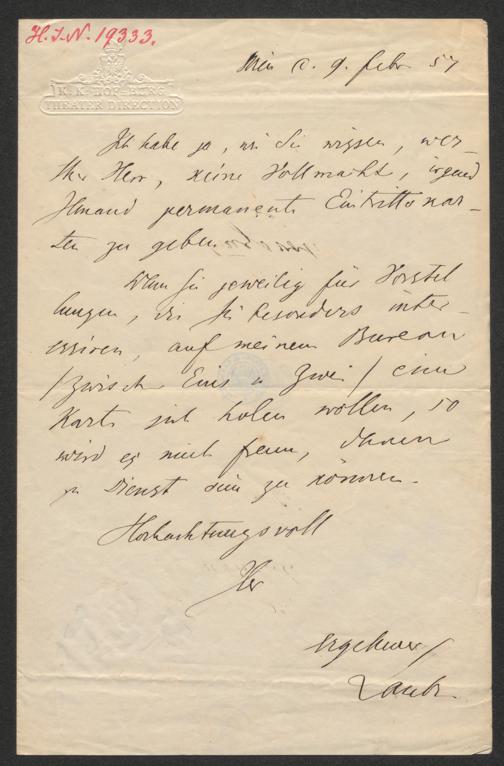 H.I.N. 19333.
K. K. HOF-BURG
THEATER DIRECTION
Wien d. 9. Febr 57
Ich habe ja, wie Sie wissen, wer-
ther Herr, keine Vollmacht, irgend
Jemand permanente Eintrittskar-
ten zu geben.
Wenn Sie jeweilig für Vorstel
lungen, die Sie besonders inter-
essiren, auf meinem Bureau
/zwischen Eins u Zwei/ eine
Karte sich holen wollen, so
wird es mich freuen, Ihnen
zu Dienst sein zu können.
Hochachtungsvoll
Ihr
ergebener
Laube.